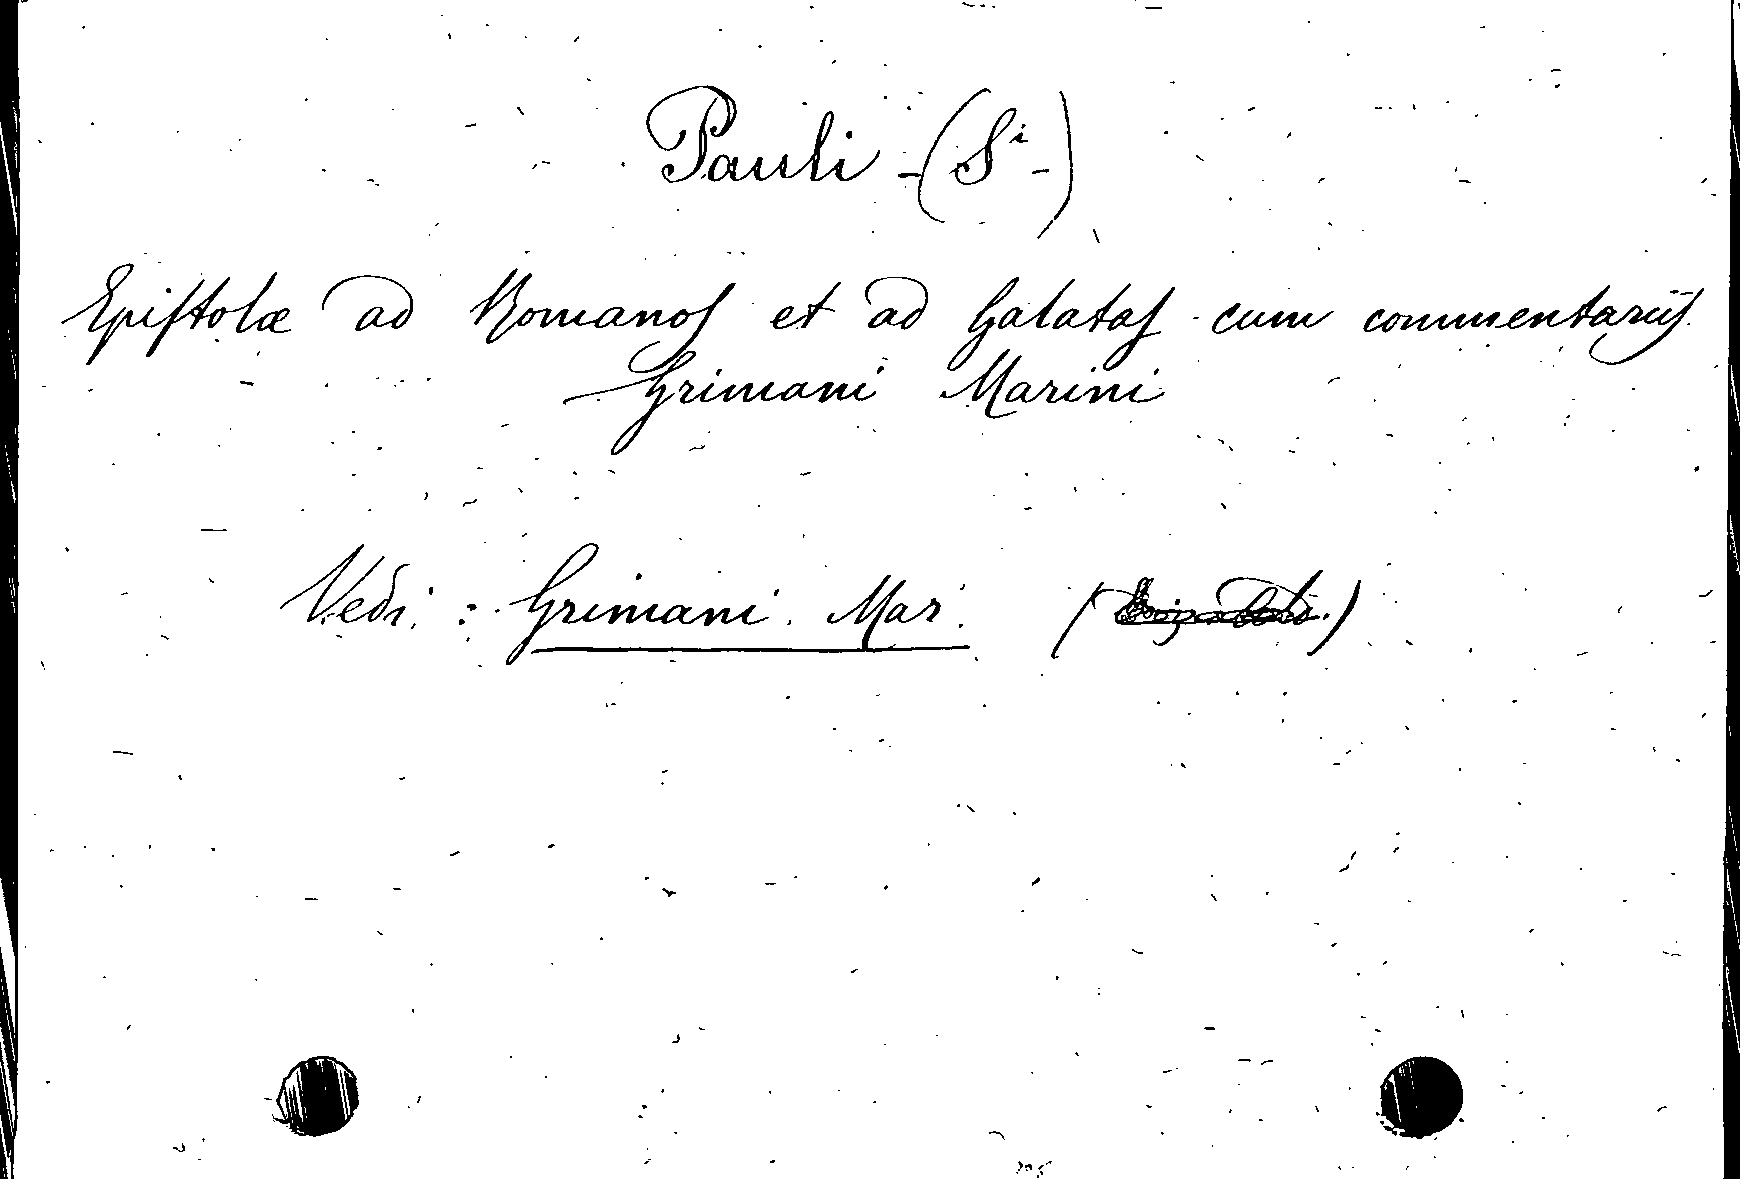 Pauli - (Si -)
Epistolæ ad Romanos et ad Galatas cum commentariis
Grimani Marini
Vedi : Grimani Mar.